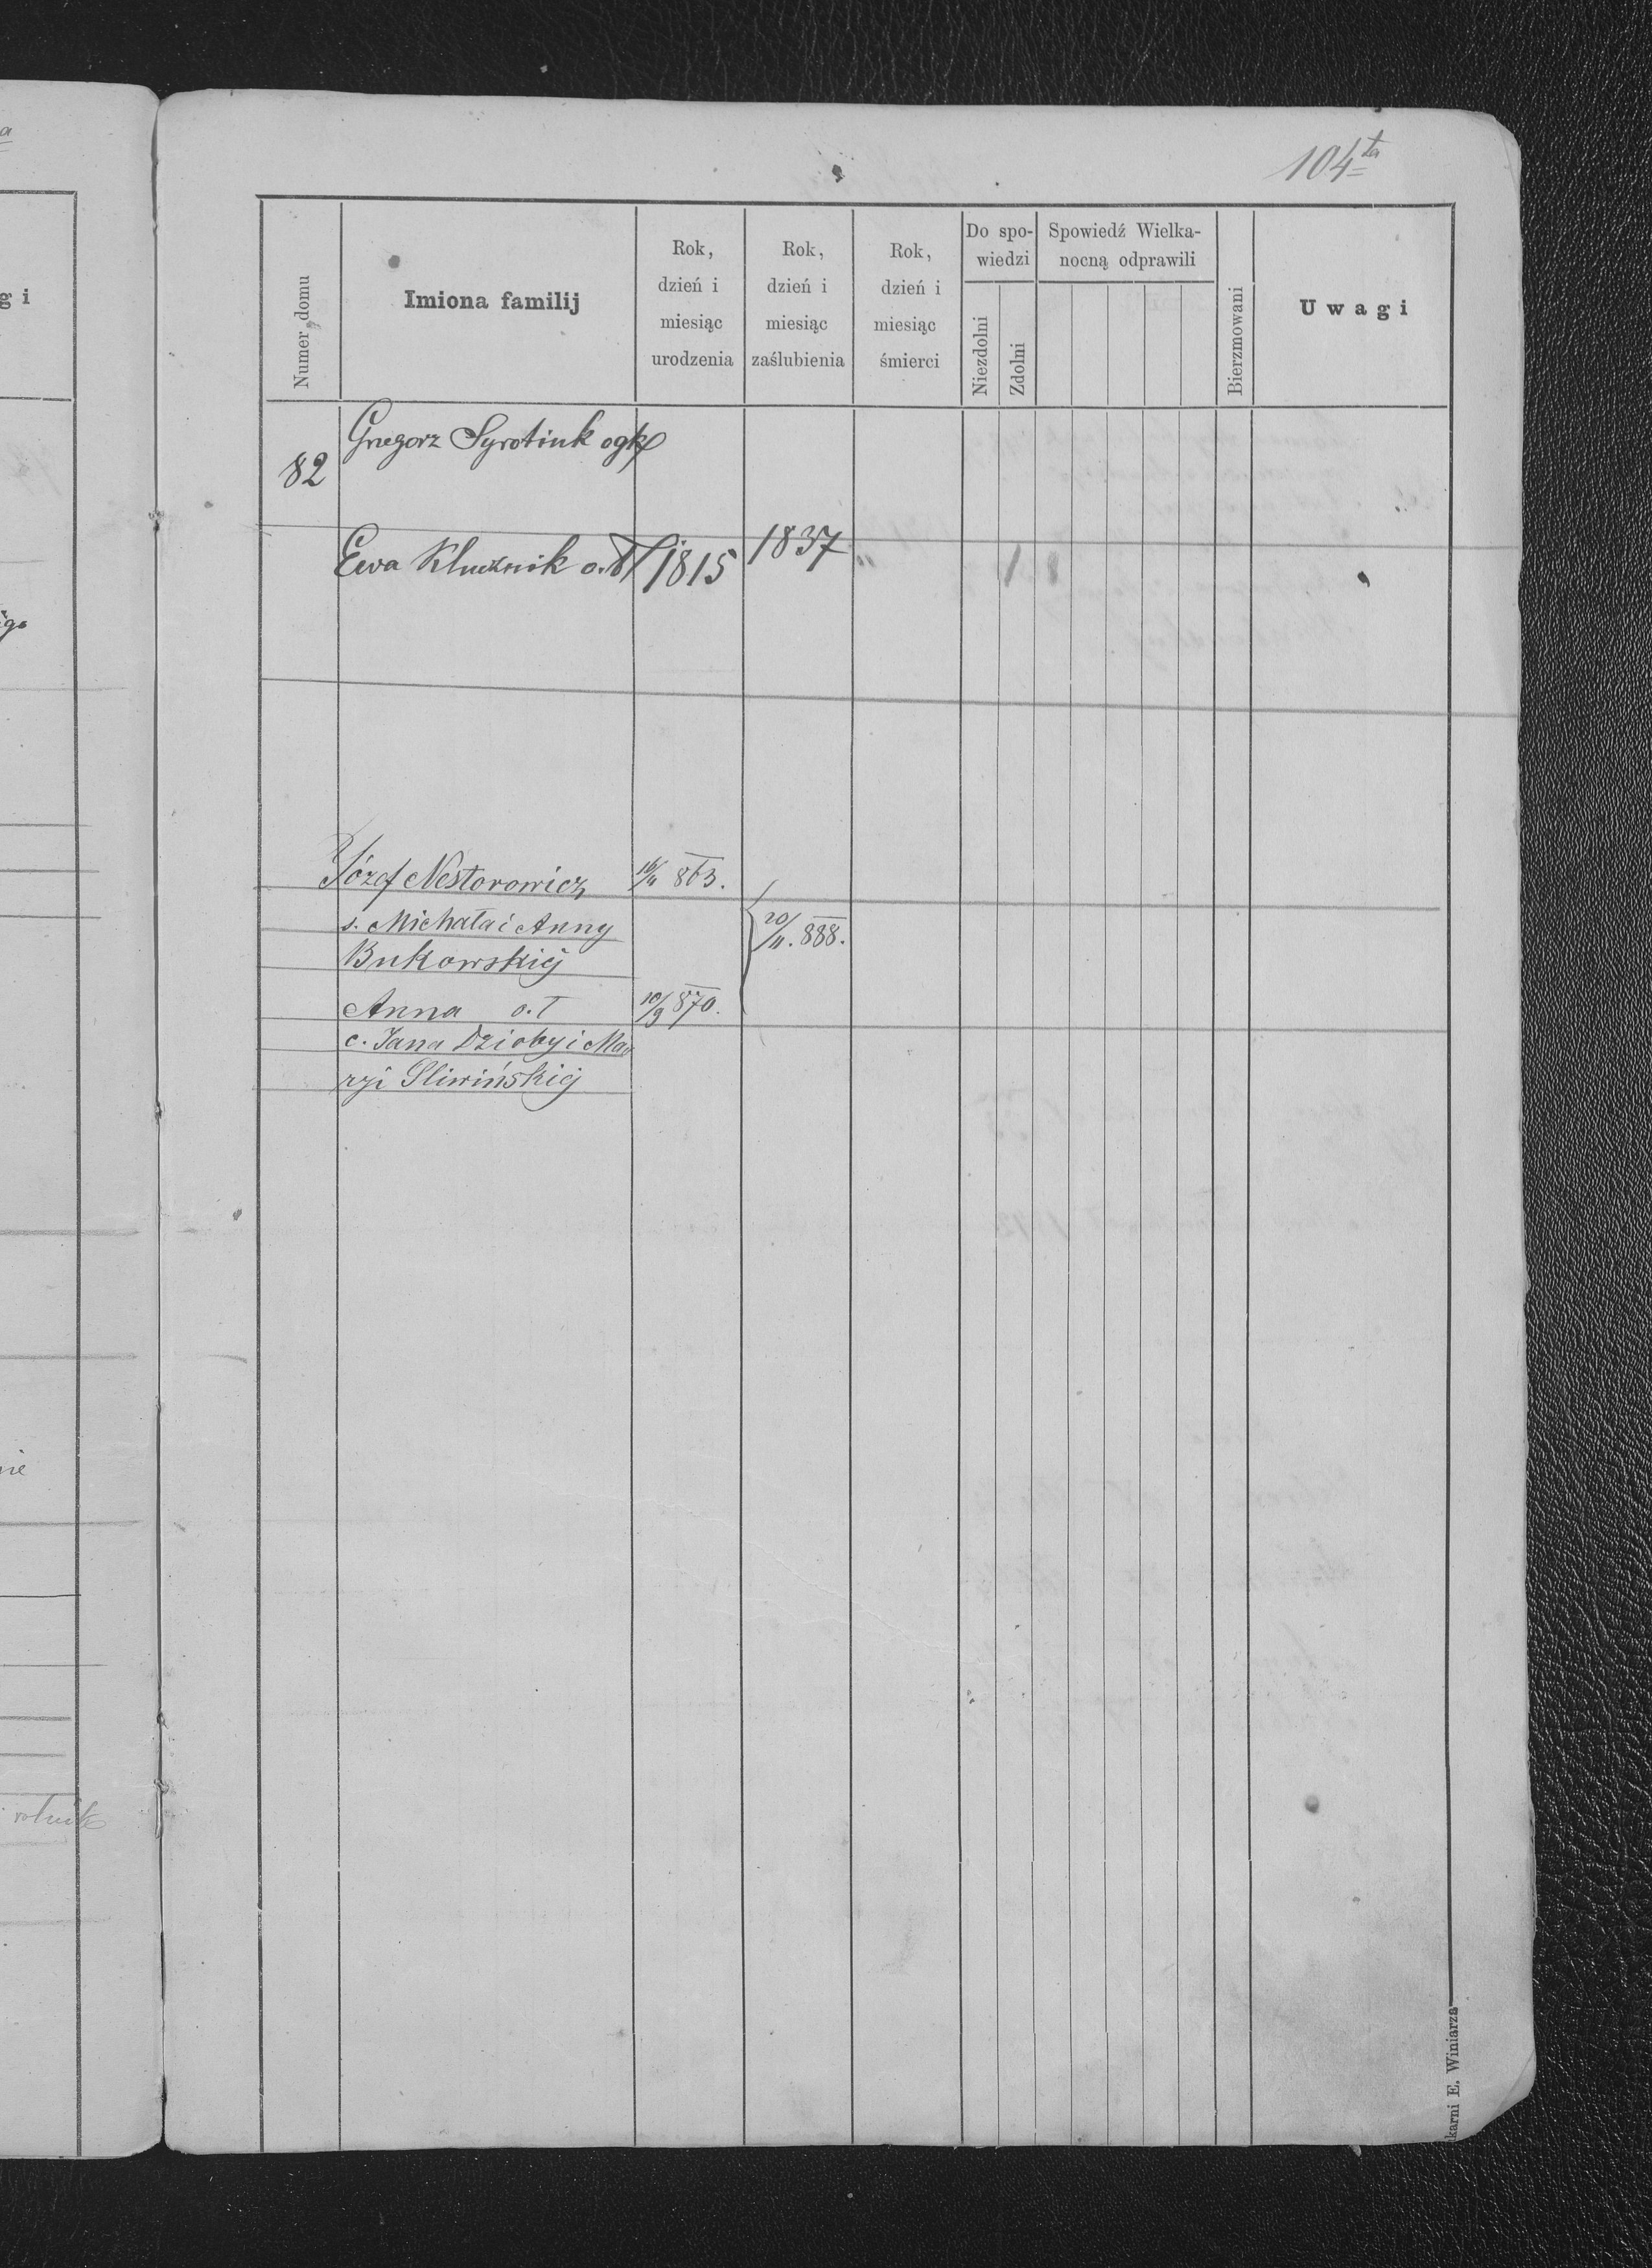 104ta
Numer domu
Imiona familij
Rok,
dzień i
miesiąc
urodzenia
Rok,
dzień i
miesiąc
zaślubienia
Rok,
dzień i
miesiąc
śmierci
Do spo-
wiedzi
Niezdolni
Zdolni
Spowiedź Wielka-
nocną odprawili
Bierzmowani
Uwagi
82
Grzegorz Syrotiuk
Ewa Kluźnik 1815 1837
1
Józef Nestorowicz 863.
s. Michała i Anny 20/11. 888.
Bukowskiéj
Anna o.T 10/9 870.
c. Jana Dzioby i Ma
ryi Sliwińskiéj
gi
rolnik
karni E. Winiarza